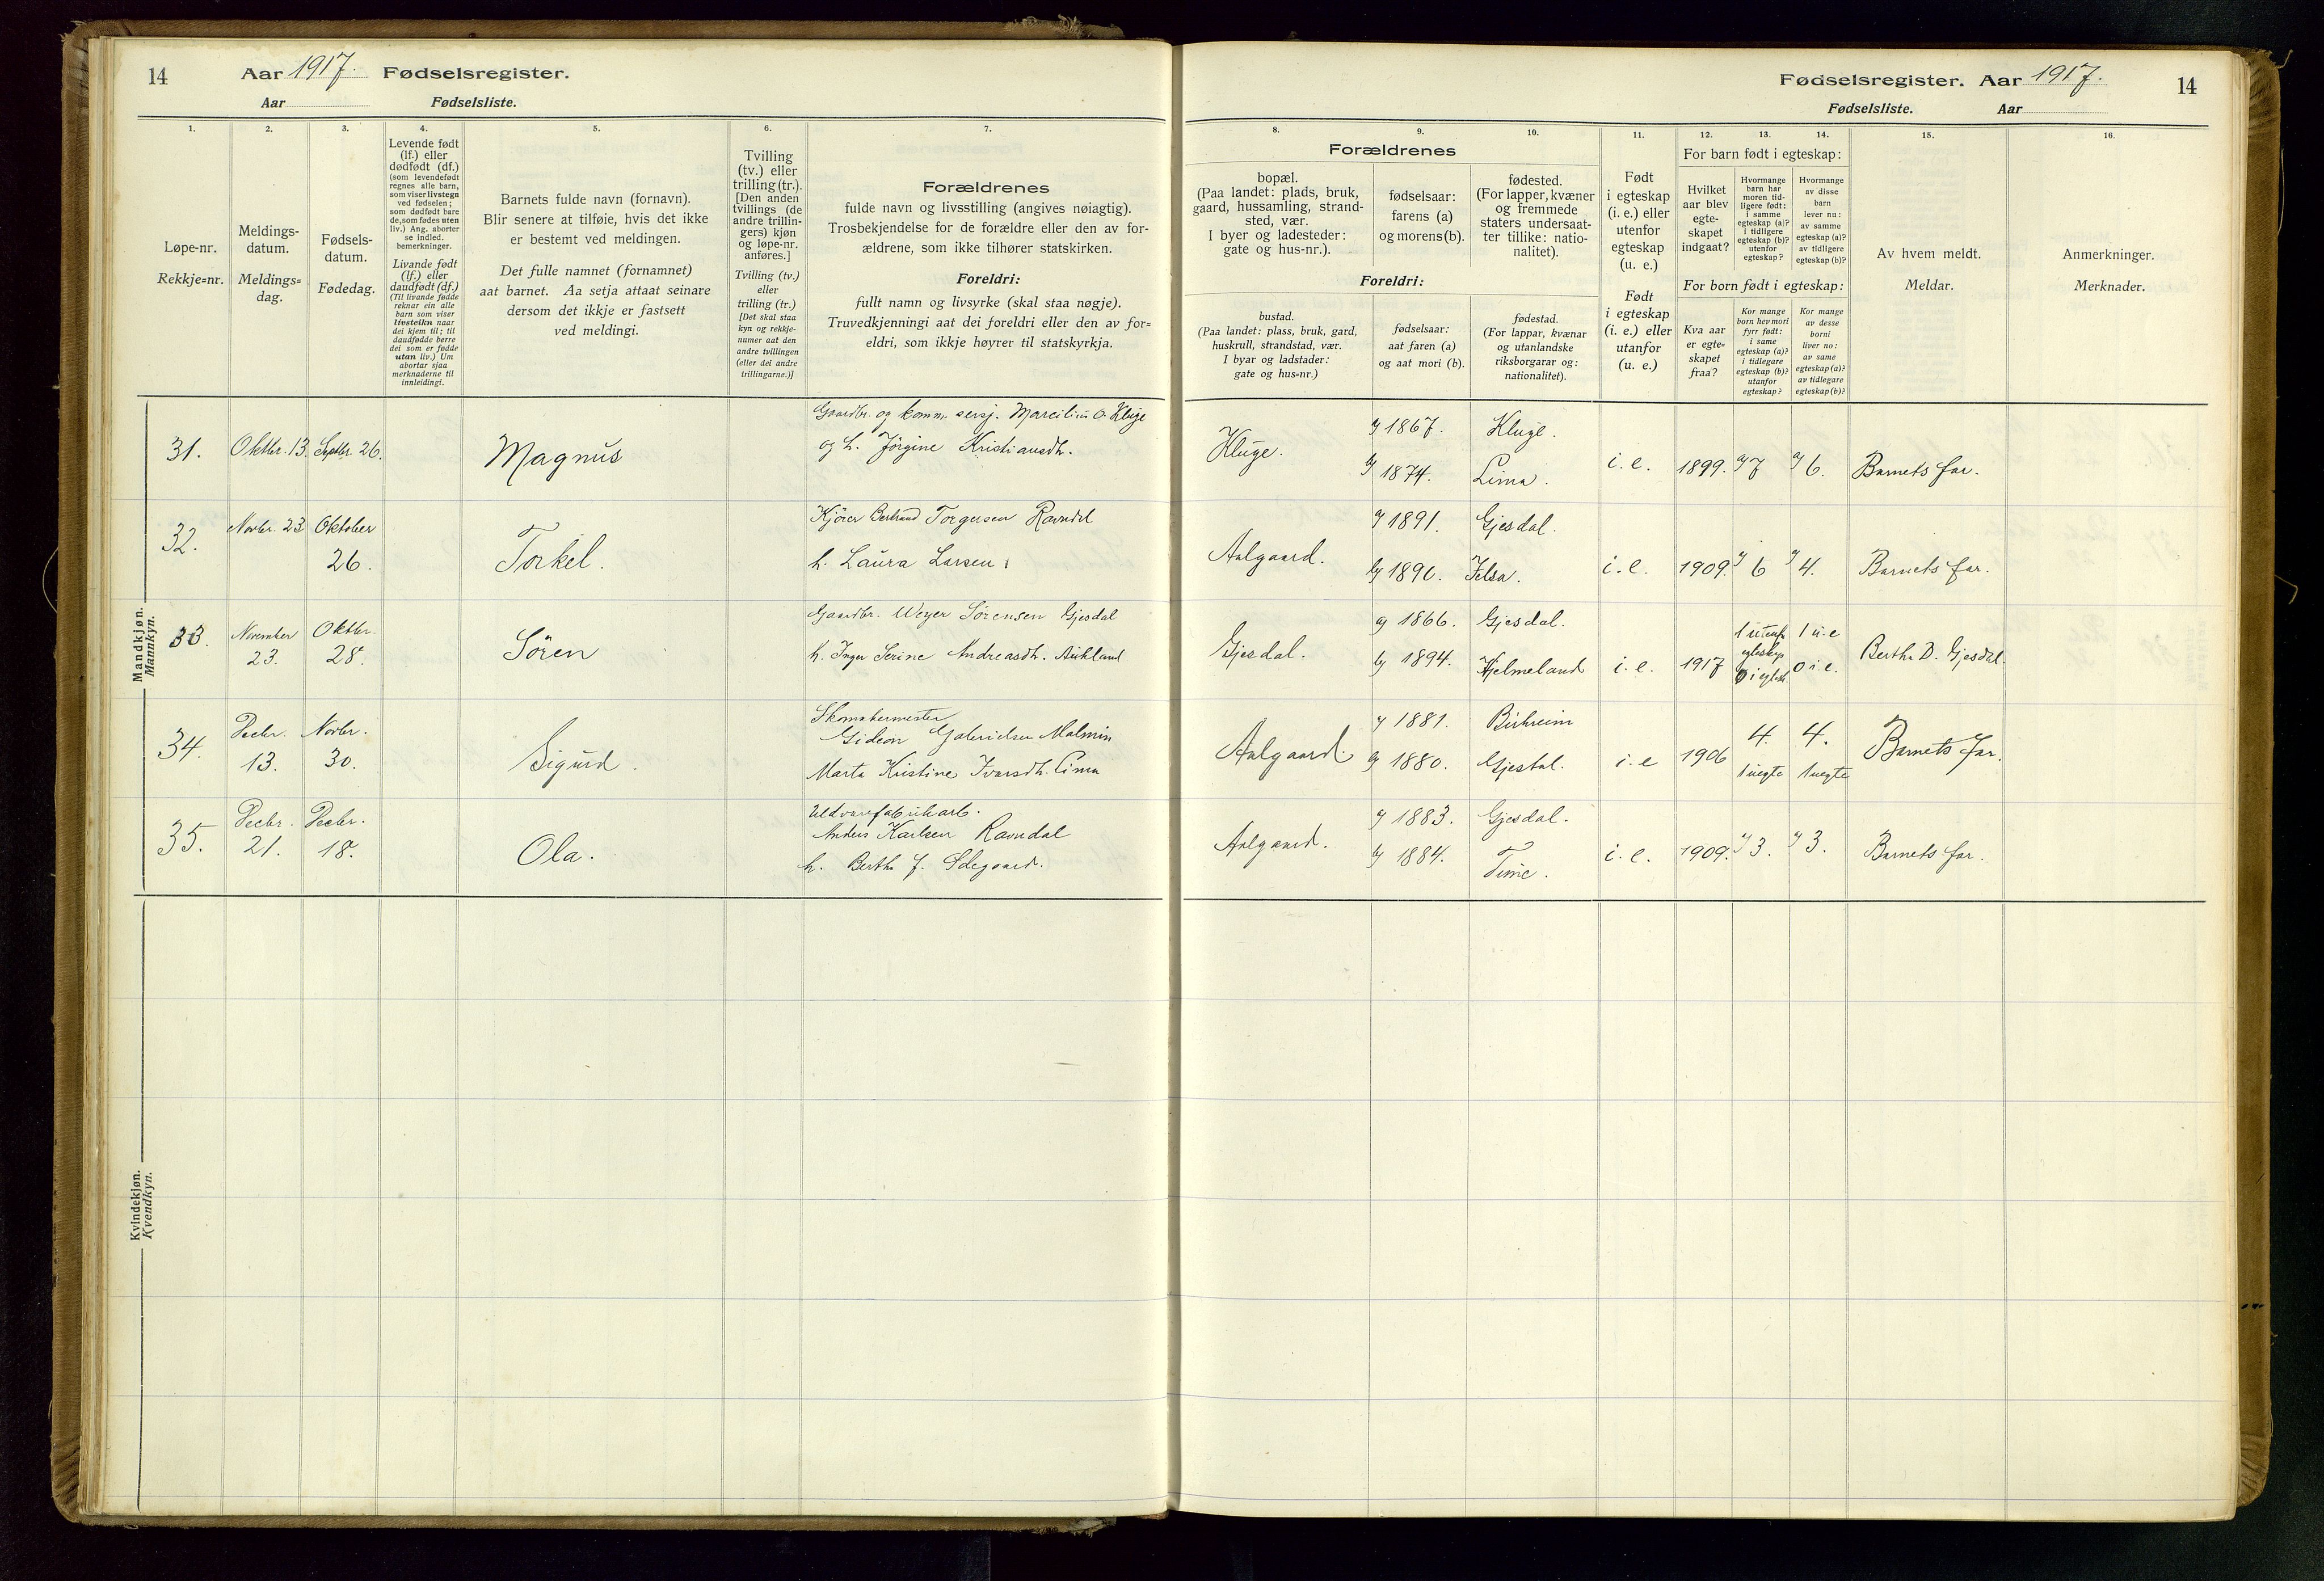 14
Aar 1917. Fødselsregister.
Aar Fødselsliste.
Fødselsregister. Aar 1917.
14
Fødselsliste. Aar
1.
2.
3.
4.
5.
6.
7.
Løpe-nr.
Rekkje=nr.
Meldings-
datum.
Meldings=
dag.
Fødsels-
datum.
Fødedag.
Levende født
(lf.) eller
dødfødt (df.)
(som levendefødt
regnes alle barn,
som viser livstegn
ved fødselen;
som dødfødt bare
de, som fødes uten
liv.) Ang. aborter
se indled.
bemerkninger.
Livande født
(lf.) eller
daudfødt (df.)
(Til livande fødde
reknar ein alle
barn som viser
livsteikn naar
dei kjem til; til
daudfødde berre
dei som er fødde
utan liv.) Um
abortar sjaa
merknaderne til
innleidingi.
Barnets fulde navn (fornavn).
Blir senere at tilføie, hvis det ikke
er bestemt ved meldingen.
Det fulle namnet (fornamnet)
aat barnet. Aa setja attaat seinare
dersom det ikkje er fastsett
ved meldingi.
Tvilling
(tv.) eller
trilling (tr.).
[Den anden
tvillings (de
andre trillin-
gers) kjøn
og løpe-nr.
anføres.]
Tvilling (tv.)
eller
trilling (tr.)
[Det skal staa
kyn og rekkje-
numer aat den
andre tvillingen
(eller dei andre
trillingarne.)]
Forældrenes
fulde navn og livsstilling (angives nøiagtig).
Trosbekjendelse for de forældre eller den av for-
ældrene, som ikke tilhører statskirken.
Foreldri:
fullt namn og livsyrke (skal staa nøgje).
Truvedkjenningi aat dei foreldri eller den av for=
eldri, som ikkje høyrer til statskyrkja.
8.
9.
10.
11.
12.
13.
14.
15.
16.
Forældrenes
bopæl.
(Paa landet: plads, bruk,
gaard, hussamling, strand-
sted, vær.
I byer og ladesteder:
gate og hus-nr.).
fødselsaar:
farens (a)
og morens (b).
fødested.
(For lapper, kvæner
og fremmede
staters undersaat-
ter tillike: natio-
nalitet).
Foreldri:
bustad.
(Paa landet: plass, bruk, gard,
huskrull, strandstad, vær.
I byar og ladstader:
gate og hus=nr.)
fødselsaar:
aat faren (a)
og aat mori (b).
fødestad.
(For lappar, kvænar
og utanlandske
riksborgarar og:
nationalitet).
Født
i egteskap
(i. e.) eller
utenfor
egteskap
(u. e.)
Født
i egteskap
(i. e.) eller
utanfor
(u. e.)
For barn født i egteskap:
Hvilket
aar blev
egte-
skapet
indgaat?
Hvormange
barn har
moren tid-
ligere født:
i samme
egteskap (a)?
i tidligere
egteskap (b)?
utenfor
egteskap?
Hvormange
av disse
barn
lever nu:
av samme
egteskap (a)?
av tidligere
egteskap (b)?
For born født i egteskap:
Kva aar
er egte=
skapet
fraa?
Kor mange
born hev mori
fyrr født:
i same
egteskap (a)?
i tidlegare
egteskap (b)?
utanfor
egteskap?
Kor mange
av desse
borni
liver no:
av same
egteskap (a)?
av tidlegare
egteskap (b)?
Av hvem meldt.
Meldar.
Anmerkninger.
Merknader.
Mandkjøn.
Mannkyn.
31. Oktbr. 13. Septbr. 26. Magnus
Gaardbr. og komm. Marcilius O. Kluge
og h. Jørgine Kristiansdh.
Kluge. a) 1867. Kluge.
b) 1874. Lima. i. e. 1899. a) 7 a) 6. Barnets far.
32. Novbr. 23 Oktober
26. Torkel.
Kjører Bertrand Torgersen Ravndal
h. Laura Larsen
Aalgaard. a) 1891. Gjesdal.
b) 1890. Jelsa. i. e. 1909. a) 6 a) 4. Barnets far.
33. November
23. Oktbr.
28. Sören
Gaardbr. Weyer Sörensen Gjesdal
h. Inger Serine Andreasdh. Aukland
Gjesdal. a) 1866. Gjesdal.
b) 1894. Hjelmeland i. e. 1917
1 utenf.
egteskap
0 i egtesk.
1 u. e
0 i e.
Berthe D. Gjesdal.
34. Decbr.
13. Novbr.
30. Sigurd.
Skomakermester
Gideon Gabrielsen Malmin
Marta Kristine Ivarsdh. Lima
Aalgaard. a) 1881. Birkreim
b) 1880. Gjestal. i. e 1906
4.
1 uegte
4.
1 uegte
Barnets far.
35. Decbr.
21. Decbr.
18. Ola.
Uldvarefabrikarb.
Anders Karlsen Ravndal
h. Berthe J. Ødegaard.
Aalgaard. a) 1883. Gjesdal.
b) 1884. Time. i. e. 1909. a) 3. a) 3. Barnets far.
Kvindekjøn.
Kvendkyn.